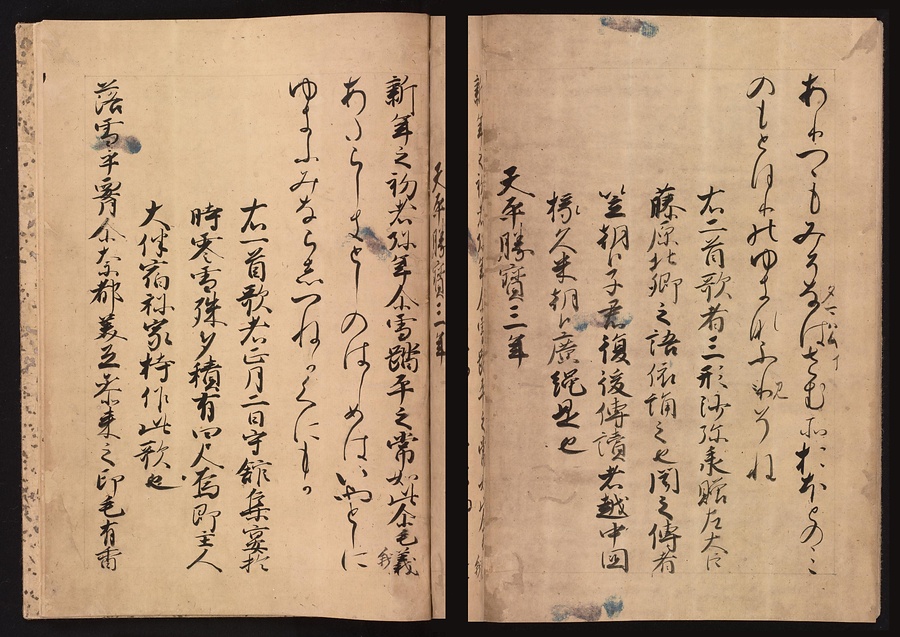 ありつゝもみそなはさむそおほとのゝこ
のもとほりのゆきなふみそね
右二首歌者三形沙弥承贈左大臣
藤原北卿之語依誦之也聞之傳者
笠朝臣子君復後傳讀者越中国
掾久米朝臣廣縄是也
天平勝寶三年
新年之初者弥年尓雪踏平之常如此尓毛義
あたらしきとしのはしめはいやとしに
ゆきふみならしつねかくにもか
右一首歌者正月二日守舘集宴於
時零雪殊多積有四尺焉即主人
大伴宿祢家持作此歌也
落雪乎腰尓奈都美弖参来之印毛有香